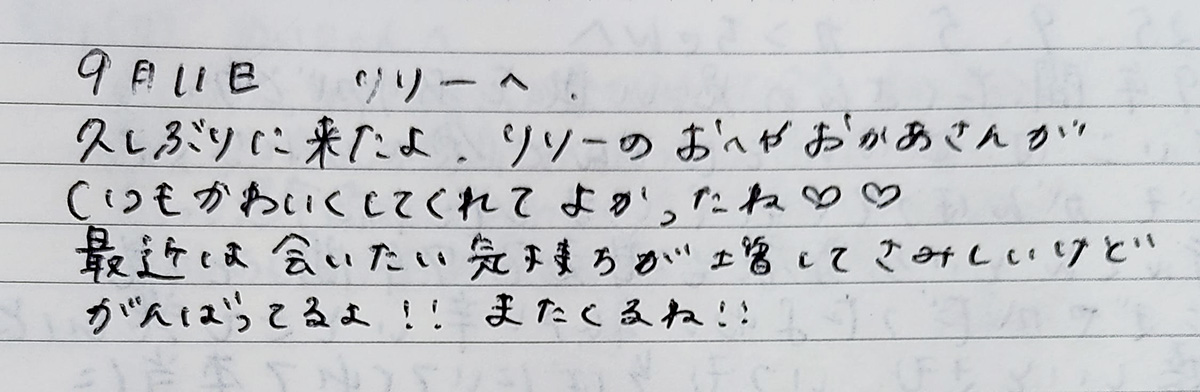 9月11日 リリーへ.
久しぶりに来たよ.リリーのおへやおかあさんが
いつもかわいくしてくれてよかったね♡♡
最近は会いたい気持ちが増してさみしいけど
がんばってるよ!!またくるね!!